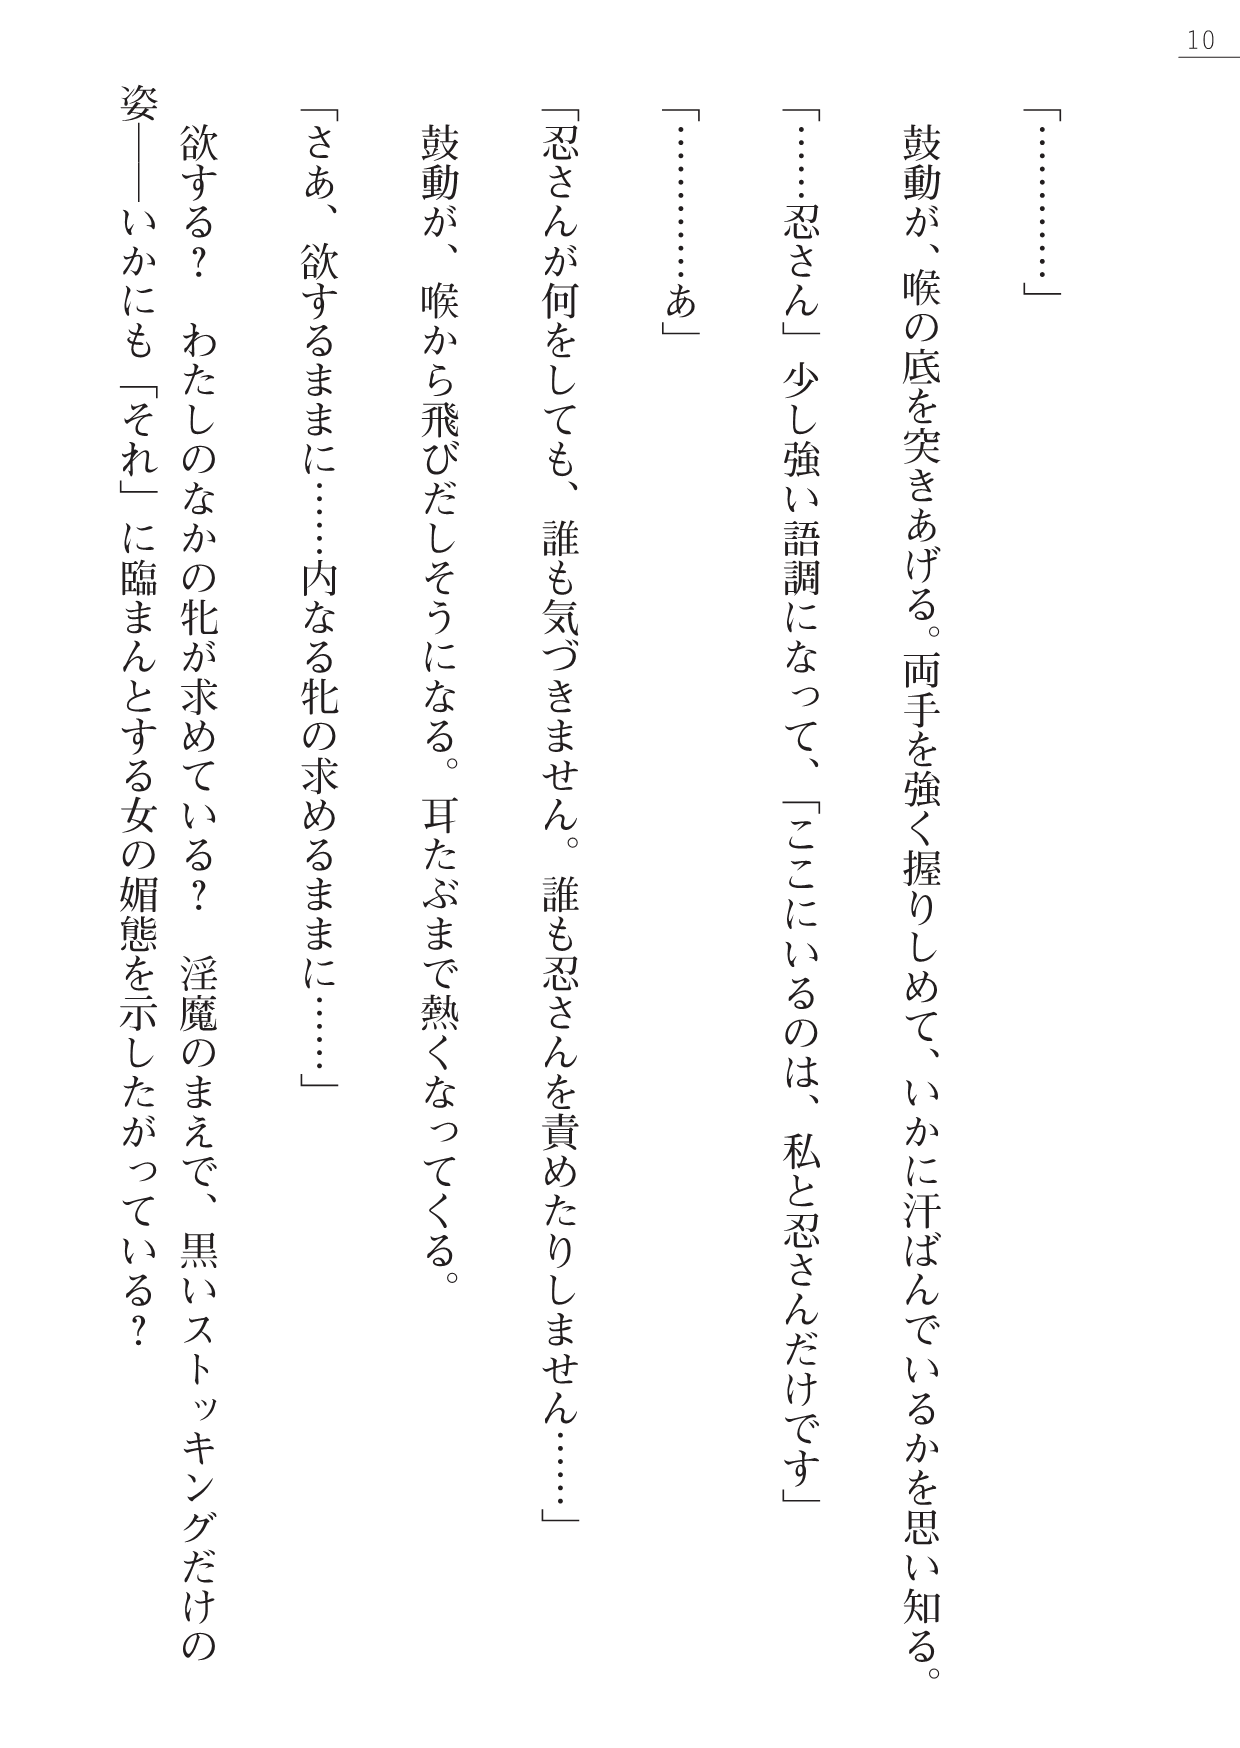 10
「…………」
鼓動が、喉の底を突きあげる。両手を強く握りしめて、いかに汗ばんでいるかを思い知る。
「……忍さん」少し強い語調になって、「ここにいるのは、私と忍さんだけです」
「…………あ」
「忍さんが何をしても、誰も気づきません。誰も忍さんを責めたりしません……」
鼓動が、喉から飛びだしそうになる。耳たぶまで熱くなってくる。
「さあ、欲するままに……内なる牝の求めるままに……」
欲する？　わたしのなかの牝が求めている？　淫魔のまえで、黒いストッキングだけの
姿――いかにも「それ」に臨まんとする女の媚態を示したがっている？